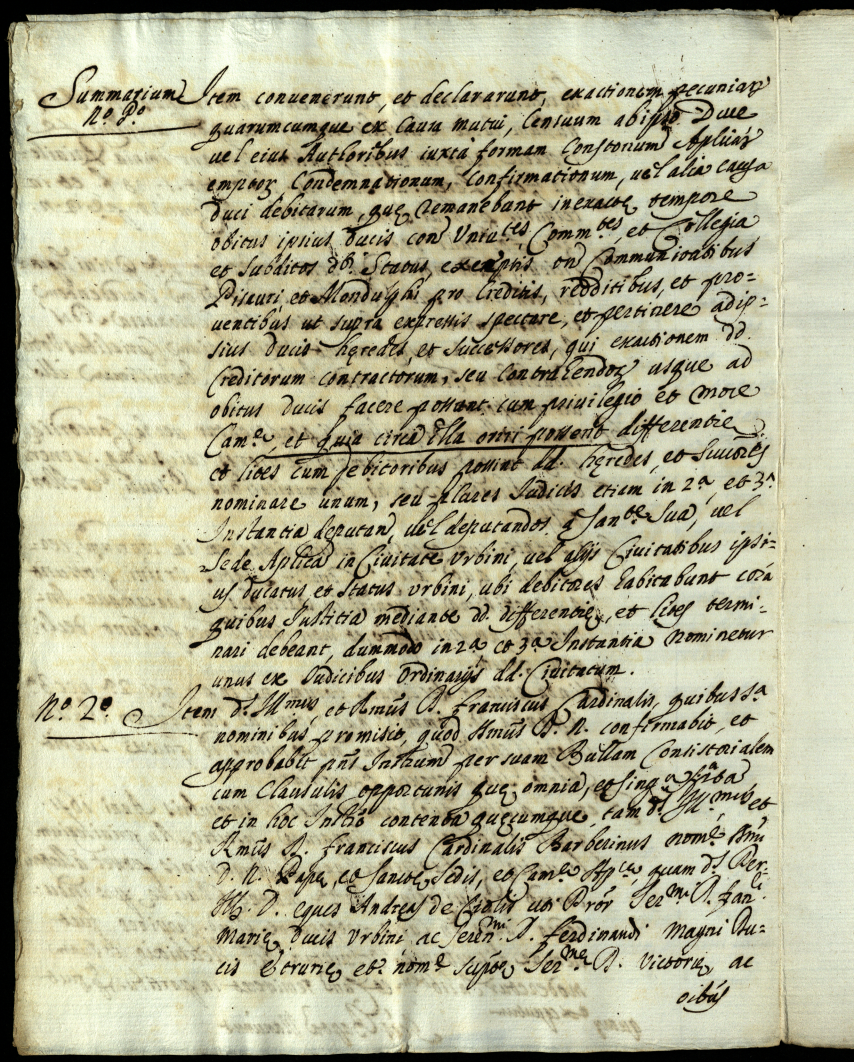 Summarium
N.o P.o
Item convenerunt, et declararunt, exactionem pecuniarȝ
quarumcumque ex causa mutui, Censuum ab ipso Duce
vel eius Authoribus iuxta formam Constonum Aplicarȝ
emptorȝ Condemnationum, Confirmationum, vel alia causa
Duci debitarum, quę remanebant inexactę tempore
obitus ipsius Ducis con Univ.tes, Comm.tes, et Collegia
et subditos d.i Status, exceptis Communitatibus
Pisauri, et Mondulphi pro Creditis, redditibus, et pro=
ventibus ut supra expressis spectare, et pertinere ad ip=
sius Ducis hęredes, et successores, qui exactionem dd.
Creditorum contractorum, seu Contrahendorȝ usque ad
obitus Ducis facere possint cum privilegio et more
Cam.ę, et quia circa illa oriri possent differentię
et lites cum debitoribus possint dd. hęredes, et Succores
nominare unum, seu plures Judices etiam in 2.a, et 3.a
Instantia deputan, vel deputandos a San.te Sua, vel
Sede Aplica in Civitate Urbini, vel alijs Civitatibus ipsi=
us Ducatus et Status Urbini, ubi debitores habitabunt corã
quibus Iustitia mediante dd. differentię, et lites termi=
nari debeant, dummodo in 2.a et 3.a Instantia nominetur
unus ex Judicibus Ordinarijs dd. Civitatum.
N.o 2.o
Item d.s Ill.mus, et Rmus D. Franciscus Cardinalis, quibus s.a
nominibus promisit, quod Smus D. N. confirmabit, et
approbabit pns Instrum per suam Bullam Consistorialem
cum Clausulis opportunis quę omnia, et singula
et in hoc Instro contenta quęcumque, tam d.s Ill.mus et
Rmus D. Franciscus Cardinalis Barberinus nom.e Smi
D. N. Papę, et Sanctę Sedis, et Cam.ę Ap.cę quam d.s Per
Ill. D. eques Andreas de Ciolis uti Pror Ser.mi D. Fran.ci
Marię Ducis Urbini ac Seren.mi D. Ferdinandi Magni Du=
cis Etrurię et nom.e supt.ę Ser.mę D. Victorię, ac
oibus